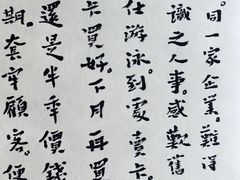 同一家企業。難得
識之人事。感歎舊
仕游泳到處賣卡。
卡買好。下月再買
還是半秊價錢
期。套牢顧客。便